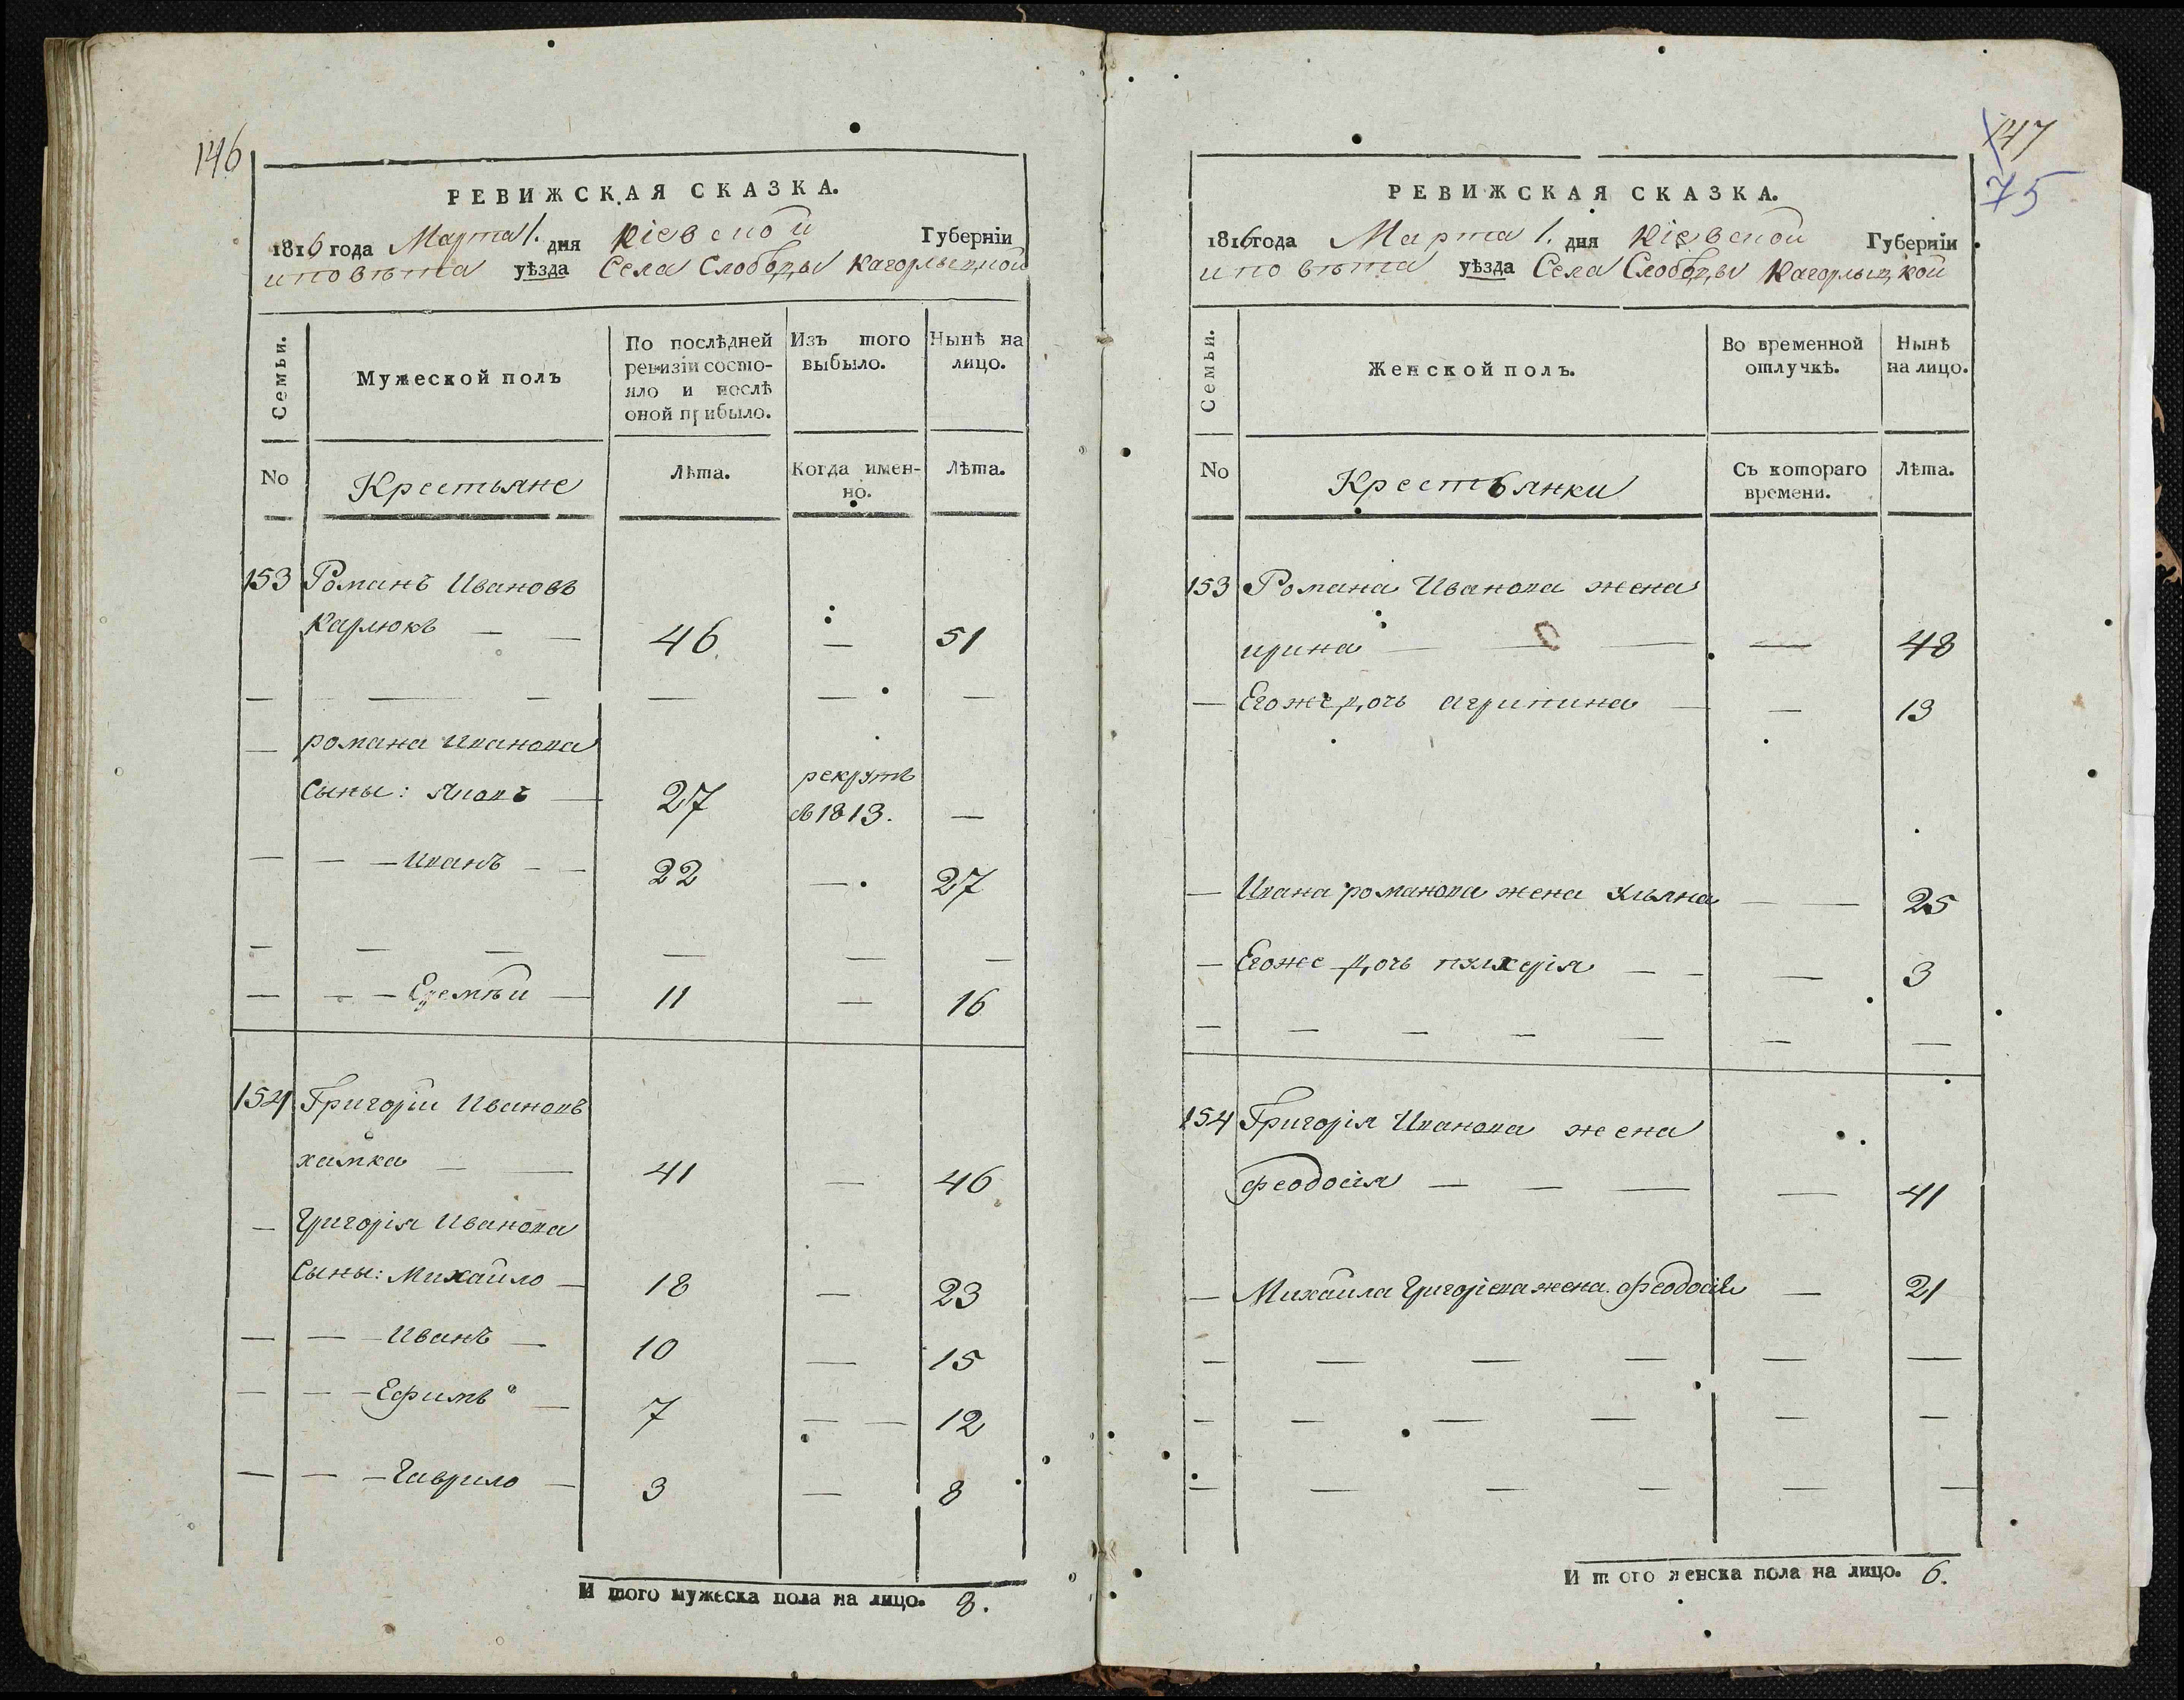 146
РЕВИЖСКАЯ СКАЗКА.
1816 года Марта 1. дня Кіевской Губерніи
и повѣта уѣзда Села Слободы Кагорлыцкой
Семьи.
Мужеской полъ
По послѣдней ревизіи состояло и послѣ оной прибыло.
Изъ того выбыло.
Нынѣ на лицо.
No
Крестьяне
Лѣта.
Когда именно.
Лѣта.
153 Романъ Ивановъ
Карлюкъ — — 46. — 51
— — — — — —
— романа Иванова
Сыны: Яковъ — 27 рекрутъ въ 1813. —
— — — Иванъ — — 22 — 27
— — — — — —
— — — Еремѣй — 11 — 16
154 Григорій Ивановъ
хамка — — 41 — 46
— Григорія Иванова
Сыны: Михайло — 18 — 23
— — — Иванъ — 10 — 15
— — — Ефимъ — 7 — — 12
— — — Гаврило — 3 — 8
И того мужеска пола на лицо. 8.
147
75
РЕВИЖСКАЯ СКАЗКА.
1816 года Марта 1. дня Кіевской Губерніи
и повѣта уѣзда Села Слободы Кагорлыцкой
Семьи.
Женской полъ.
Во временной отлучкѣ.
Нынѣ на лицо.
No
Крестьянки
Съ котораго времени.
Лѣта.
153 Романа Иванова жена
ирина — — — — 48
— Егоже дочь агрипина — — 13
— Ивана романова жена Ульяна — — 25
— Егоже дочь пулхерія — — — 3
— — — — — — —
154 Григорія Иванова жена
Феодосія — — — — 41
— Михайла Григоріева жена Феодосія — 21
— — — — — —
— — — — — —
— — — — — —
И того женска пола на лицо. 6.